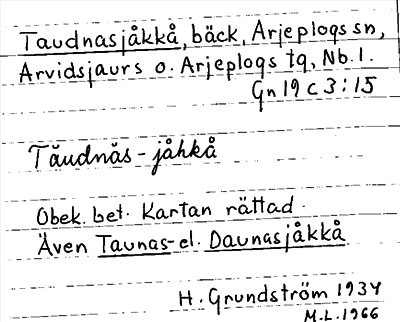 Taudnasjåkkå, bäck, Arjeplogs sn,
Arvidsjaurs o. Arjeplogs tg, Nb. l.
Gn 19 c 3:15
Tăudnăs-jåhkå
Obek. bet. Kartan rättad.
Även Taunas- el. Daunasjåkkå
H. Grundström 1934
M.L. 1966